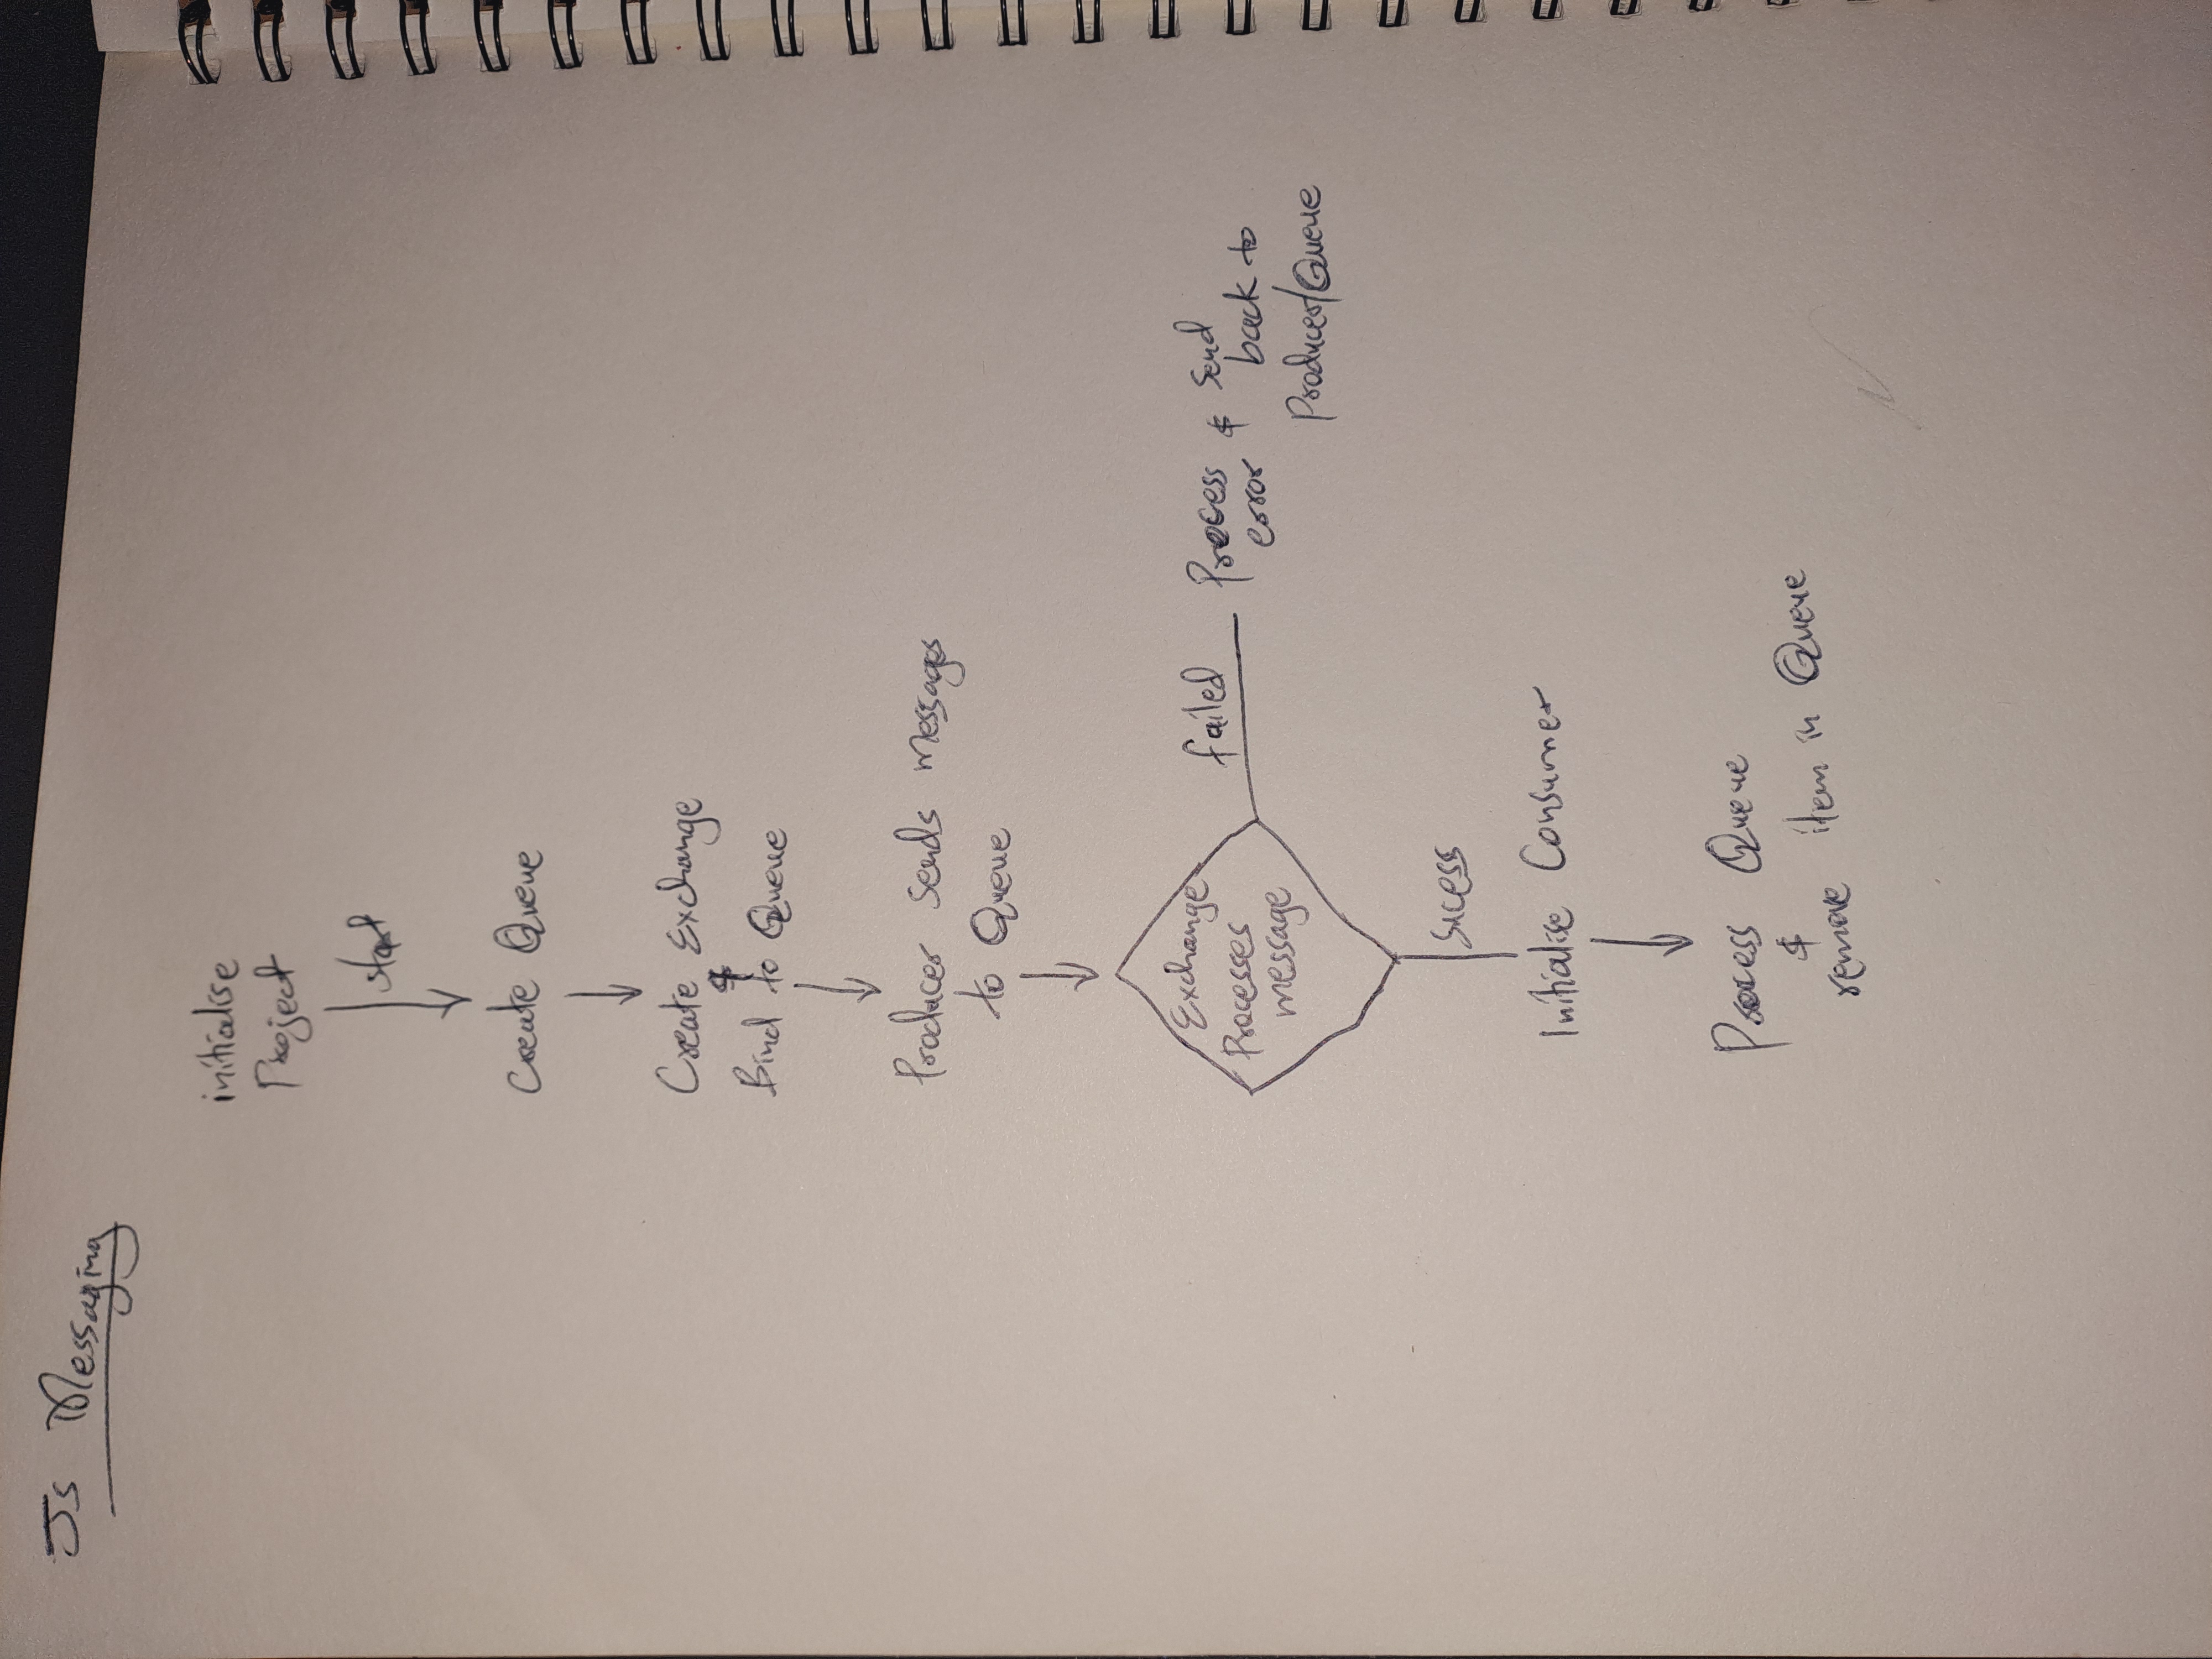 Js Messaging
initialise
Project
start
Create Queue
Create Exchange
&
Bind to Queue
Producer sends messages
to Queue
Exchange
Processes
message
failed
Process & send
error back to
Producer/Queue
Sucess
Initialise Consumer
Process Queue
&
remove item in Queue